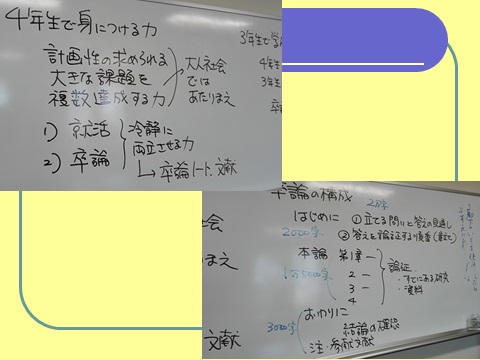 4年生で身につける力
計画性の求められる
大きな課題を
複数達成する力
大人社会
では
あたりまえ
1) 就活
2) 卒論
冷静に
両立させる力
→卒論ノート、文献
3年生で学
4年生
3年生
卒
卒論の構成
2万字
はじめに
①立てる問いと答えの見通し
2000字
②答えを論証する順番(章立て)
本論 第1章
1万5000字
2
3
4
論証
・すでにある研究
・資料
おわりに
3000字
結論の確認
注・参考文献
社会
まえ
文献